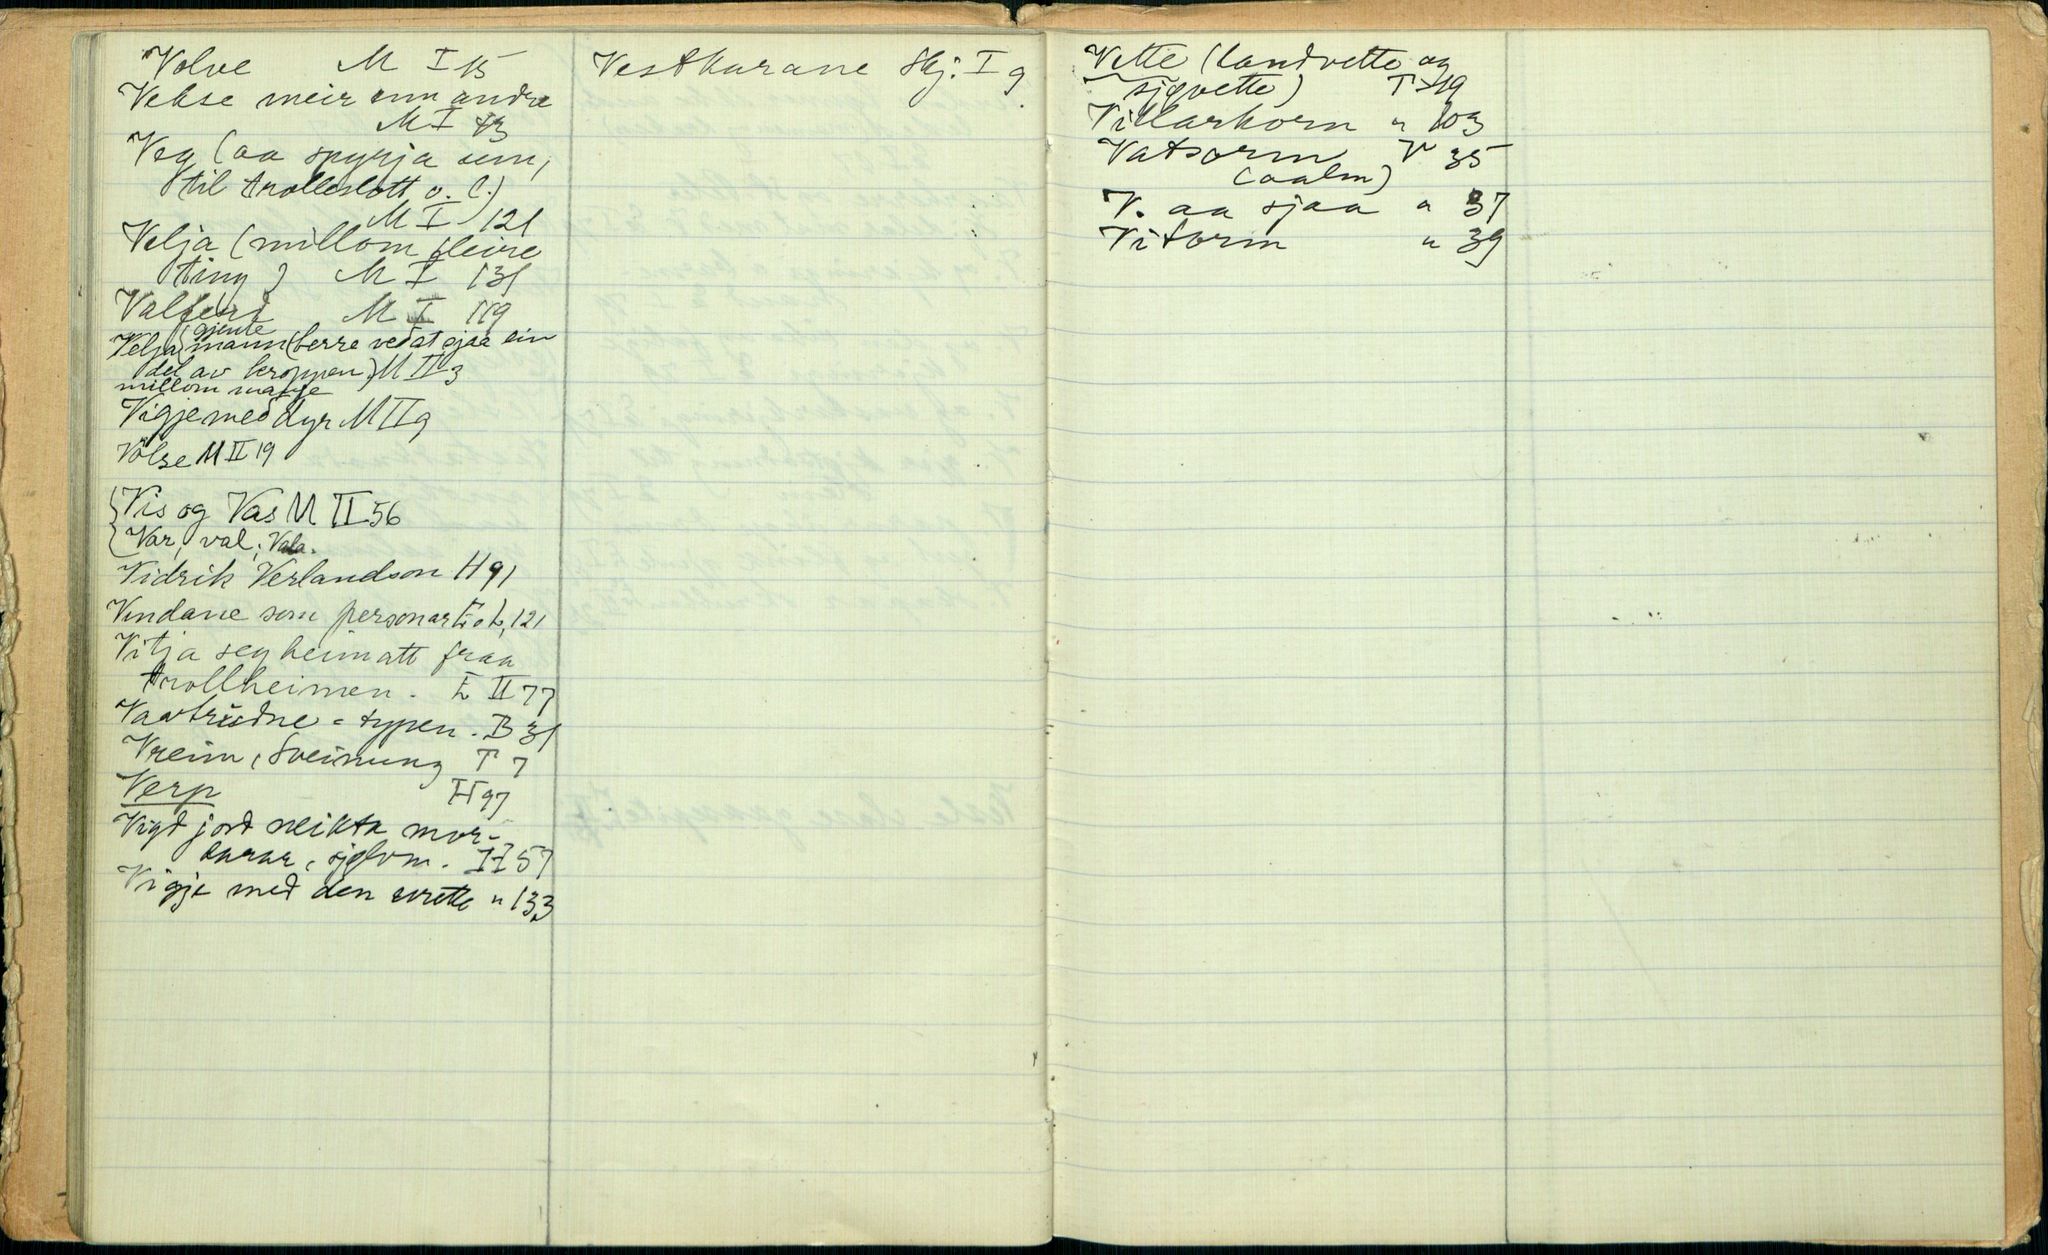 Volve M I 15
Vekse meir enn andre
M I 43
Veg (aa spyrja um,
til trolleslott o. l.)
M I 121
Velja (millom fleire
ting) M I 131
Valferd M I 119
gjente
Velja mann (berre ved at sjaa ein
del av kroppen) M II 3
millom mange
Vigje med dyr M II 9
Volse M II 19
Vis og Vas M II 56
Var, val; Vala.
Vidrik Verlandson H 91
Vindane som personar E o L, 121
Vitja seg heimatt fraa
trollheimen. L II 77
Vavtrudne-typen. B 31
Vreim, Sveinung T 7
Verp H 97
Vigd jord neikta mor-
darar, sjølvm. H 57
Vigje med den vrette " 133
Vestkarane Skj. I 9
Vette (landvette og
sjøvette) T 19
Villarkorn " 103
Vatsorm V 35
(aalm)
V. aa sjaa " 37
Vitorm " 39